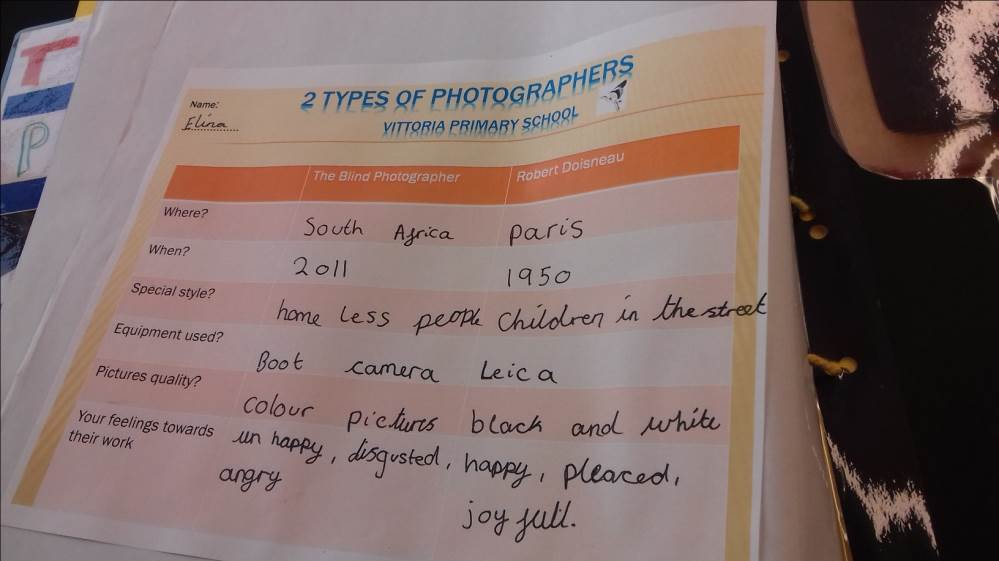 T
P
2 TYPES OF PHOTOGRAPHERS
Name:
Elina
VITTORIA PRIMARY SCHOOL
The Blind Photographer Robert Doisneau
Where? South Africa paris
When? 2011 1950
Special style? home less people children in the street
Equipment used? Boot camera Leica
Pictures quality? colour pictures black and white
Your feelings towards un happy, disgusted, happy, pleaced,
their work angry joy full.